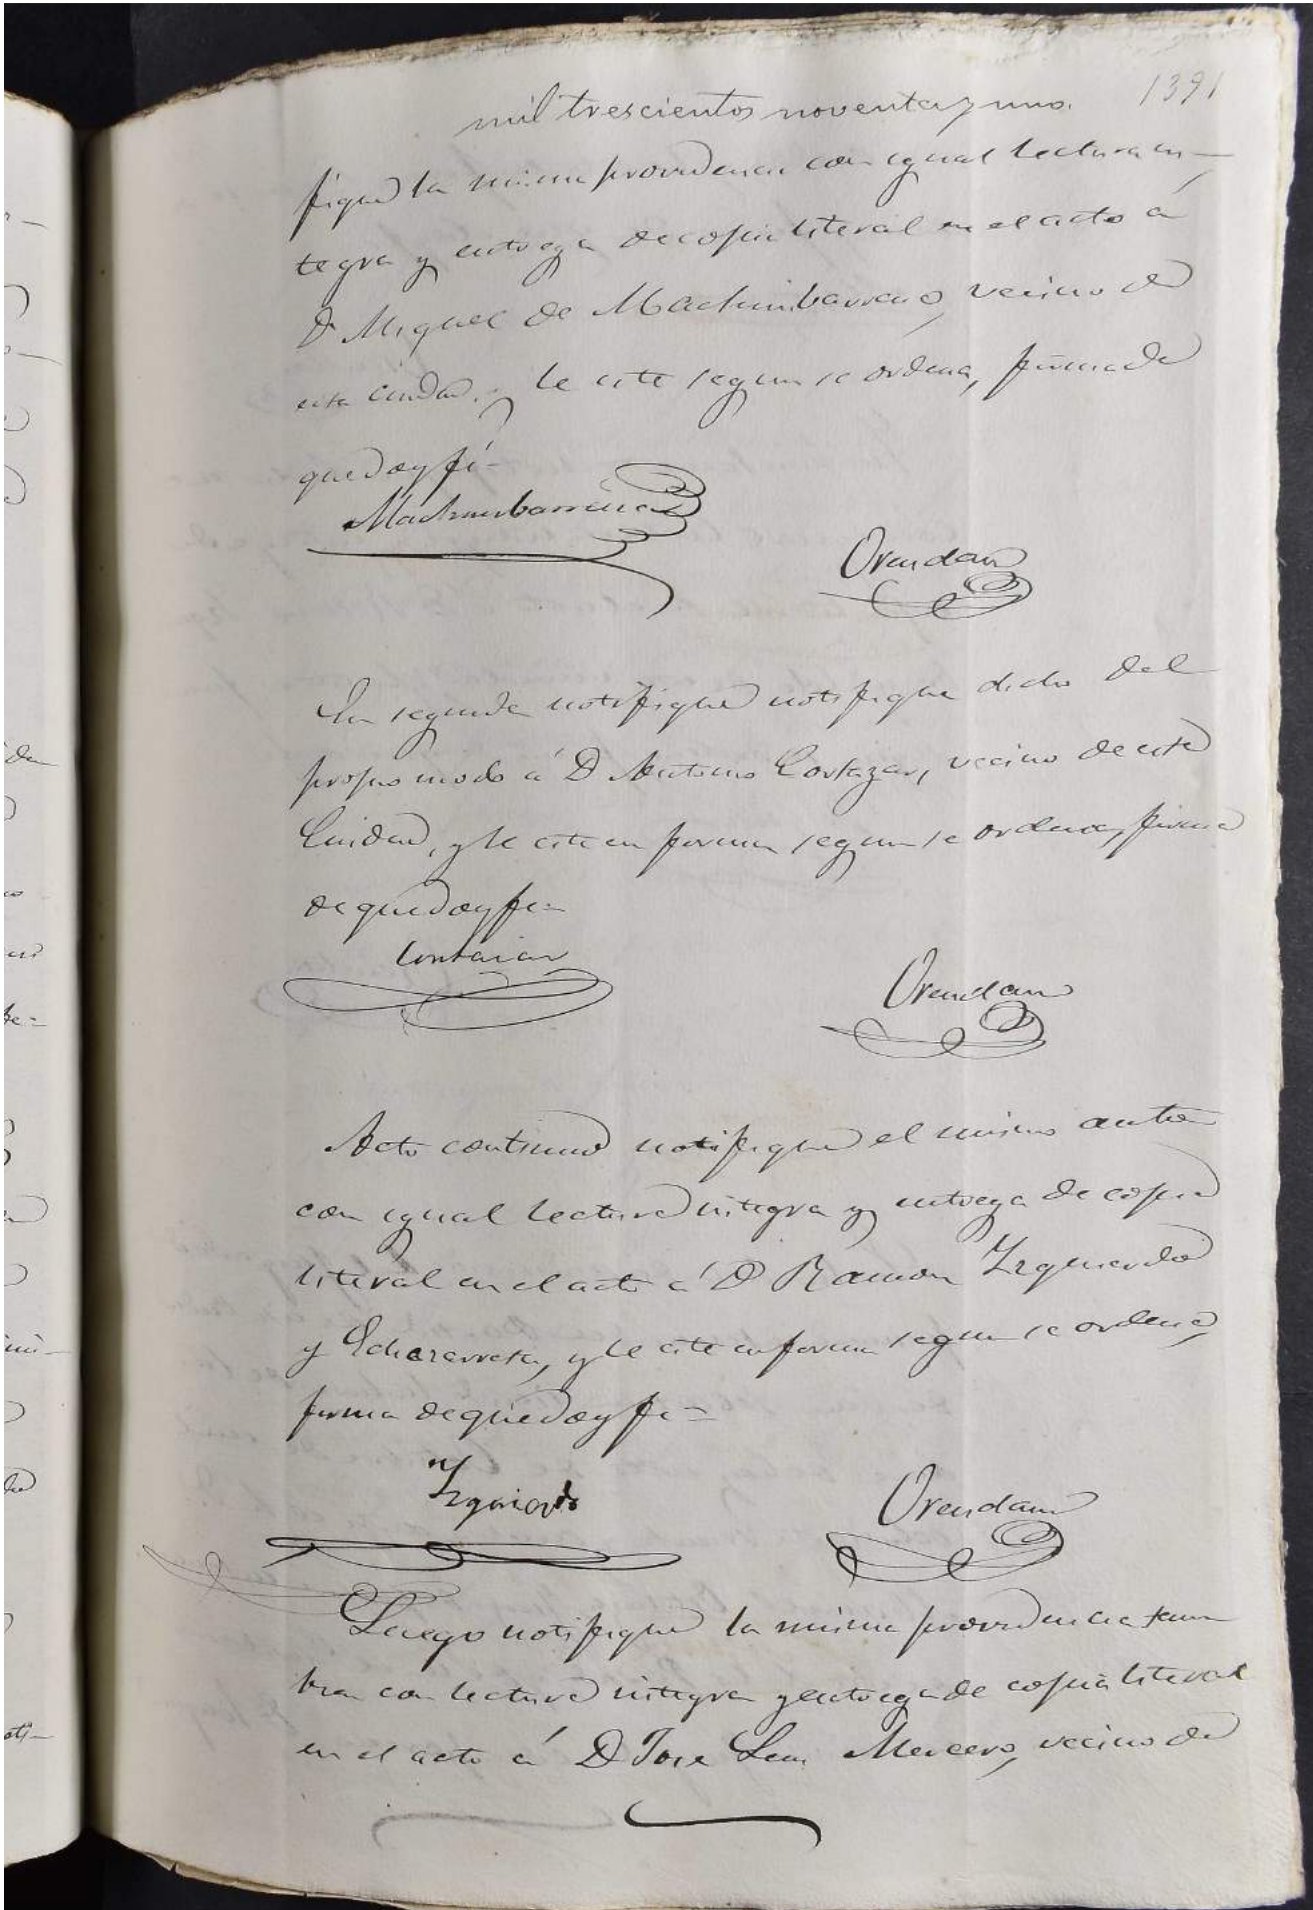 1391
mil trescientos noventa y uno.
fiqué la misma providencia con igual lectura ín-
tegra y entrega de copia literal en el acto á
D. Miguel de Machimbarrena, vecino de
esta ciudad, y le cité segun se ordena, firma de
que doy fé-
Machimbarrena
Orendain
En seguida notifiqué notifiqué dicho del
propio modo á D Antonio Cortazar, vecino de esta
Ciudad, y le cité en forma segun se ordena, firma
de que doy fe=
Cortazar
Orendain
Acto continuo notifiqué el mismo auto
con igual lectura integra y entrega de copia
literal en el acto á D Ramon Izquierdo
y Echezarreta, y le cité en forma segun se ordena,
firma de que doy fe=
Izquierdo
Orendain
Luego notifiqué la misma providencia tam
bien con lectura integra y entrega de copia literal
en el acto á D Jose Luis Mercero, vecino de